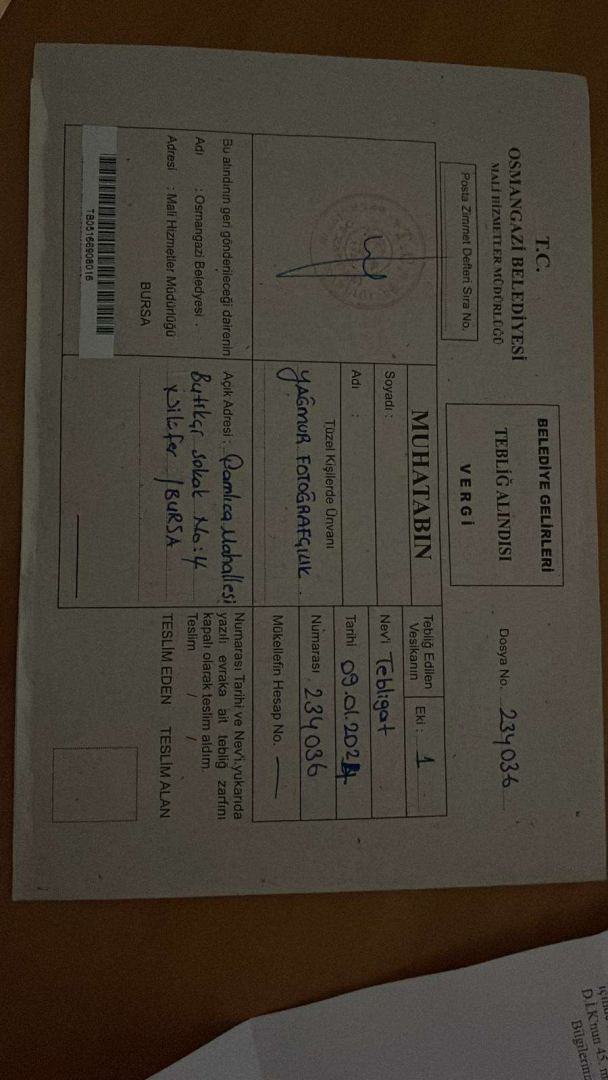 T.C.
OSMANGAZİ BELEDİYESİ
MALİ HİZMETLER MÜDÜRLÜĞÜ
Posta Zimmet Defteri Sıra No.
BELEDİYE GELİRLERİ
TEBLİĞ ALINDISI
VERGİ
Dosya No. 234036
MUHATABIN
Soyadı :
Adı :
Tüzel Kişilerde Ünvanı
YAĞMUR FOTOĞRAFÇILIK
Tebliğ Edilen
Vesikanın
Eki : 1
Nev'i Tebligat
Tarihi 09.01.2024
Numarası 234036
Mükellefin Hesap No. —
Bu alındının geri gönderileceği dairenin
Adı : Osmangazi Beledyesi .
Adresi : Mali Hizmetler Müdürlüğü
BURSA
TB08166908016
Açık Adresi : Çamlıca Mahallesi
sokak No: 4
Nilüfer / BURSA
Numarası Tarihi ve Nev'i,yukarıda
yazılı evraka ait tebliğ zarfını
kapalı olarak teslim aldım.
Teslim / /
TESLİM EDEN TESLİM ALAN
D.İ.K'nun 45.